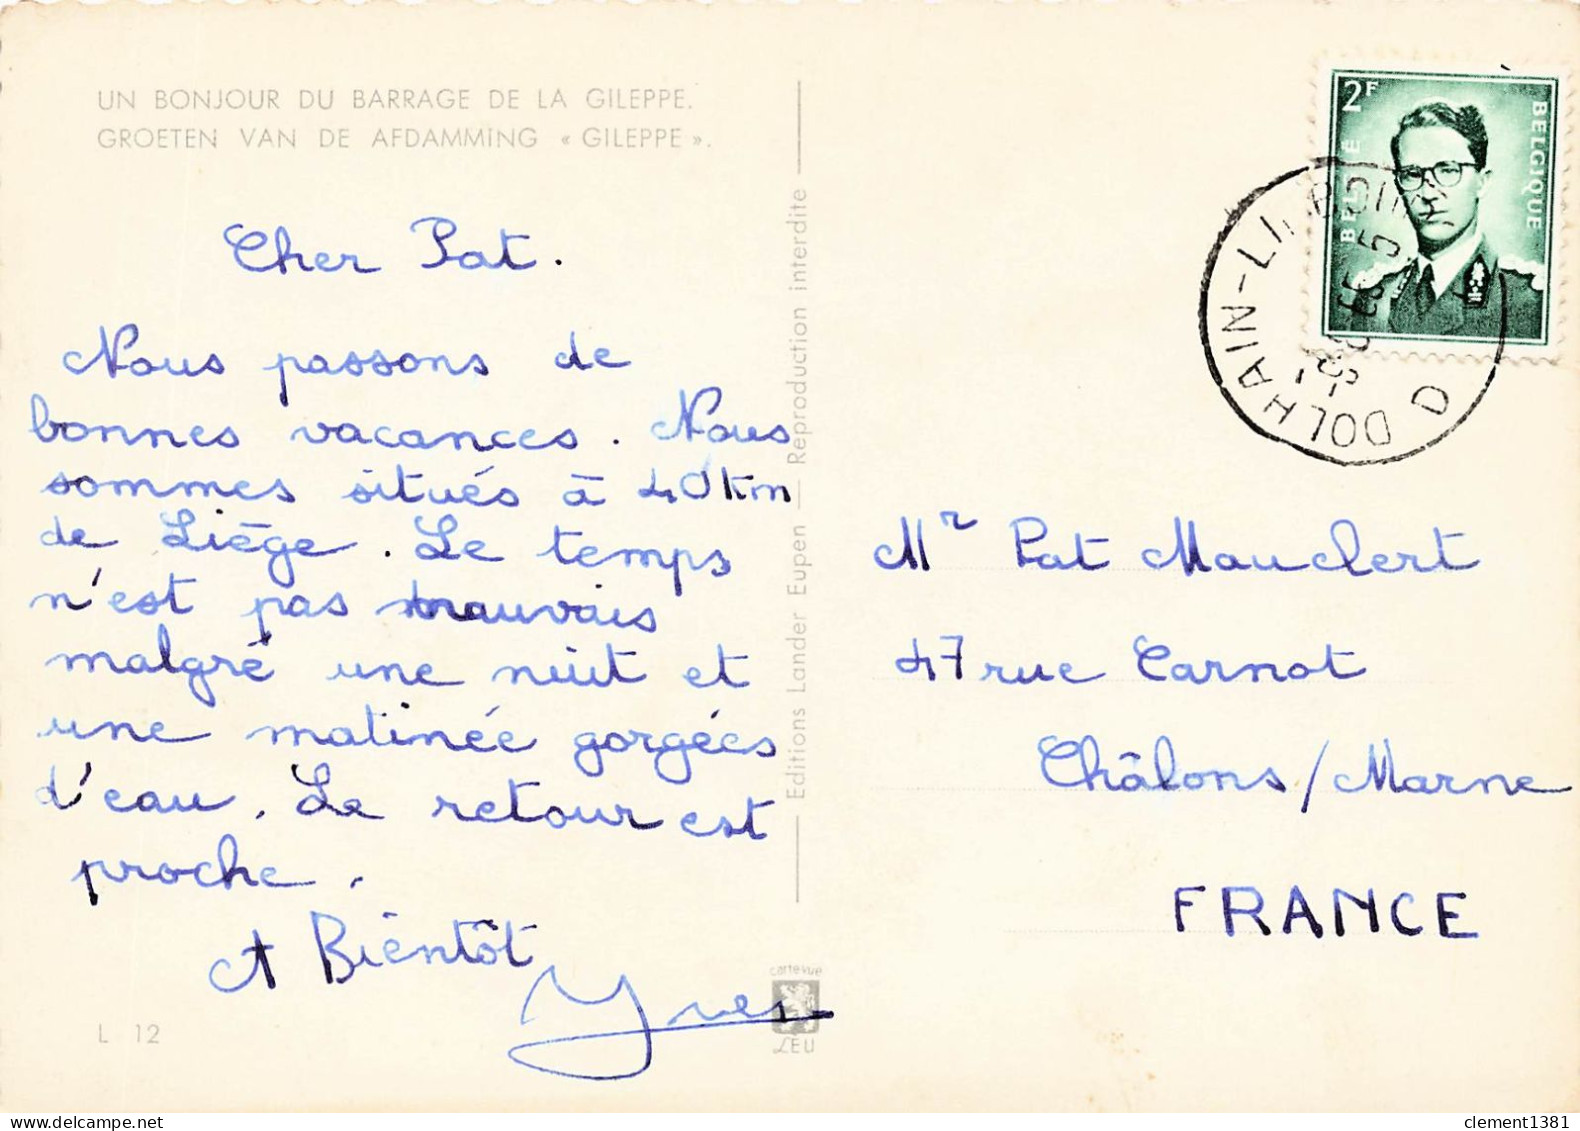 UN BONJOUR DU BARRAGE DE LA GILEPPE.
GROETEN VAN DE AFDAMMING « GILEPPE ».
Cher Pat.
Nous passons de
bonnes vacances. Nous
sommes situés à 40km
de Liège. Le temps
n'est pas mauvais
malgré une nuit et
une matinée gorgées
d'eau. Le retour est
proche.
A Bientôt
Yves
L 12
Editions Lander Eupen — Reproduction interdite
carte vue
LEU
2F
BELGIË
BELGIQUE
DOLHAIN-LI
D
Mr Pat Mauclert
47 rue Carnot
Châlons/Marne
FRANCE
clement1381